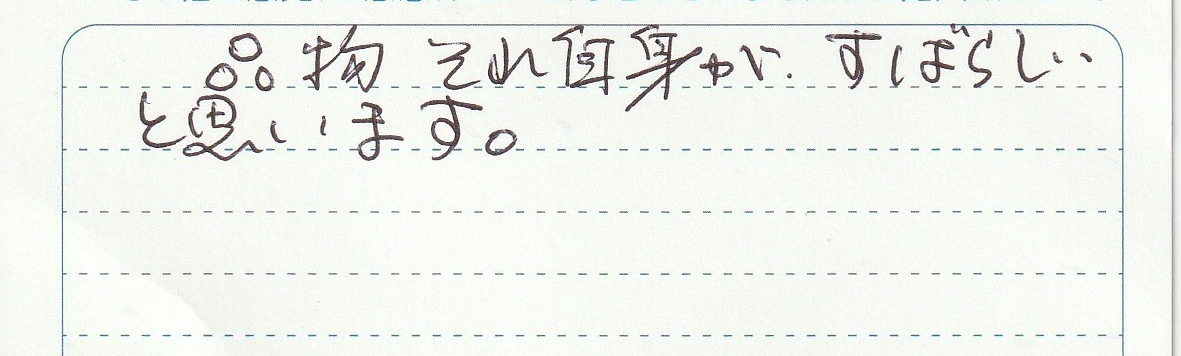 品物それ自身が、すばらしい
と思います。